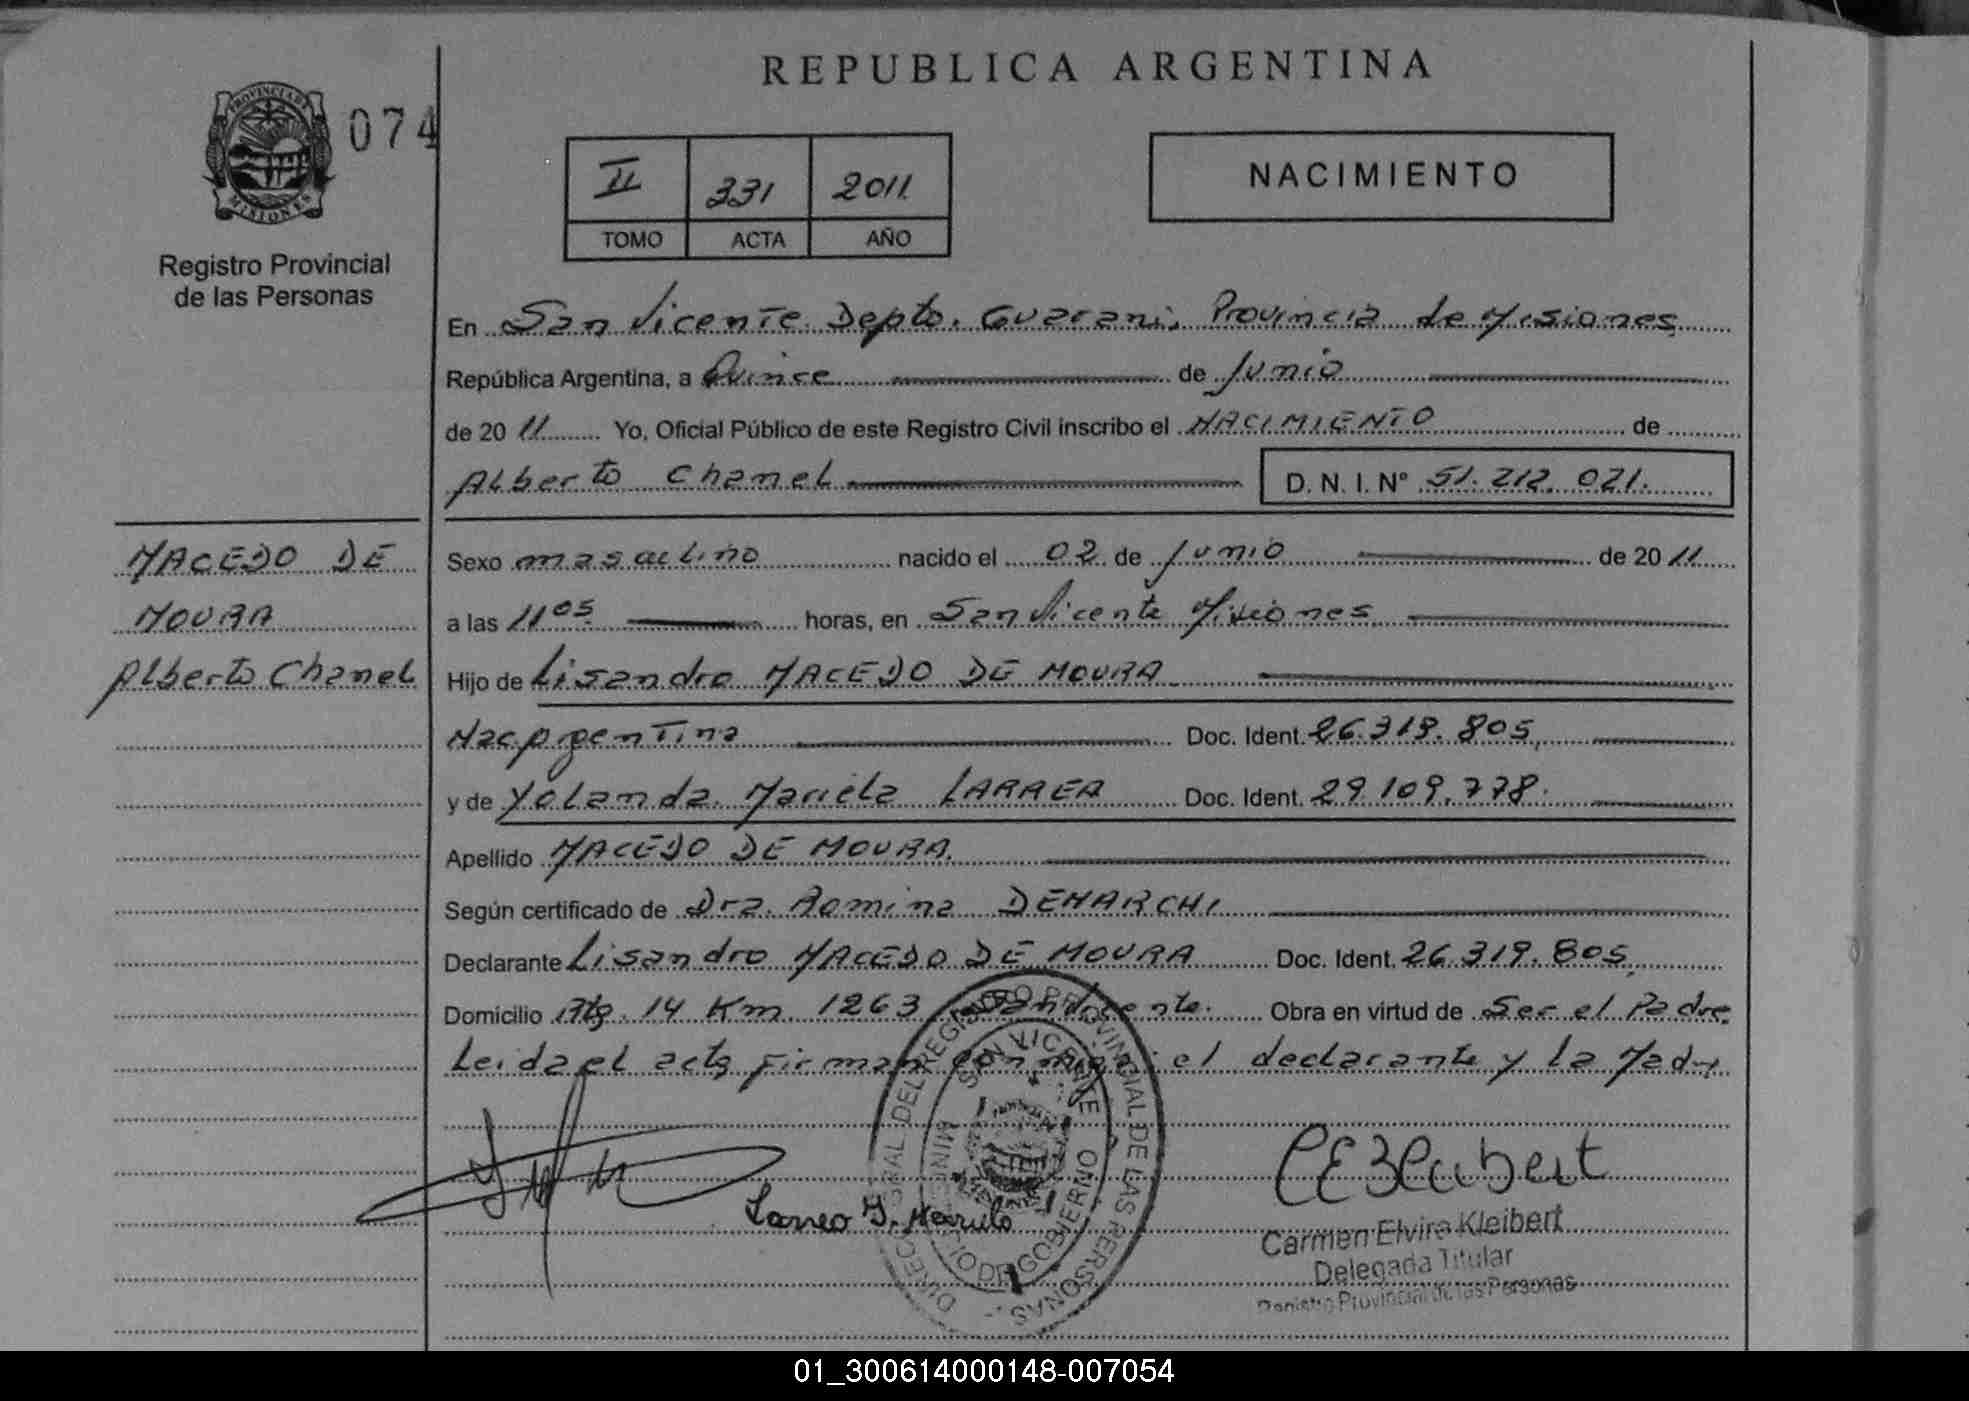 REPUBLICA ARGENTINA
PROVINCIA DE MISIONES
074
Registro Provincial
de las Personas
II 331 2011
TOMO ACTA AÑO
NACIMIENTO
En San Vicente Depto. Guarani, Provincia de Misiones
República Argentina, a Quince de Junio
de 2011 Yo, Oficial Público de este Registro Civil inscribo el NACIMIENTO de
Alberto Chanel D. N. I. N° 51.212.021.
MACEDO DE
MOURA
Alberto Chanel
Sexo masculino nacido el 02 de Junio de 2011
a las 11 05 horas, en San Vicente Misiones
Hijo de Lisandro MACEDO DE MOURA
Nac Argentina Doc. Ident. 26.319.805,
y de Yolanda Mariela LARREA Doc. Ident. 29.109.778.
Apellido MACEDO DE MOURA
Según certificado de Dra. Romina DEMARCHI
Declarante Lisandro MACEDO DE MOURA Doc. Ident. 26.319.805,
Domicilio Rta. 14 Km. 1263 San Vicente. Obra en virtud de Ser el Padre
Leida el acta firman conmigo el declarante y la Madre
DIRECC GRAL DEL REGISTRO PROVINCIAL DE LAS PERSONAS
SAN VICENTE
MINISTERIO DE GOBIERNO
Carmen Elvira Kleibert
Delegada Titular
Registro Provincial de las Personas
01_300614000148-007054